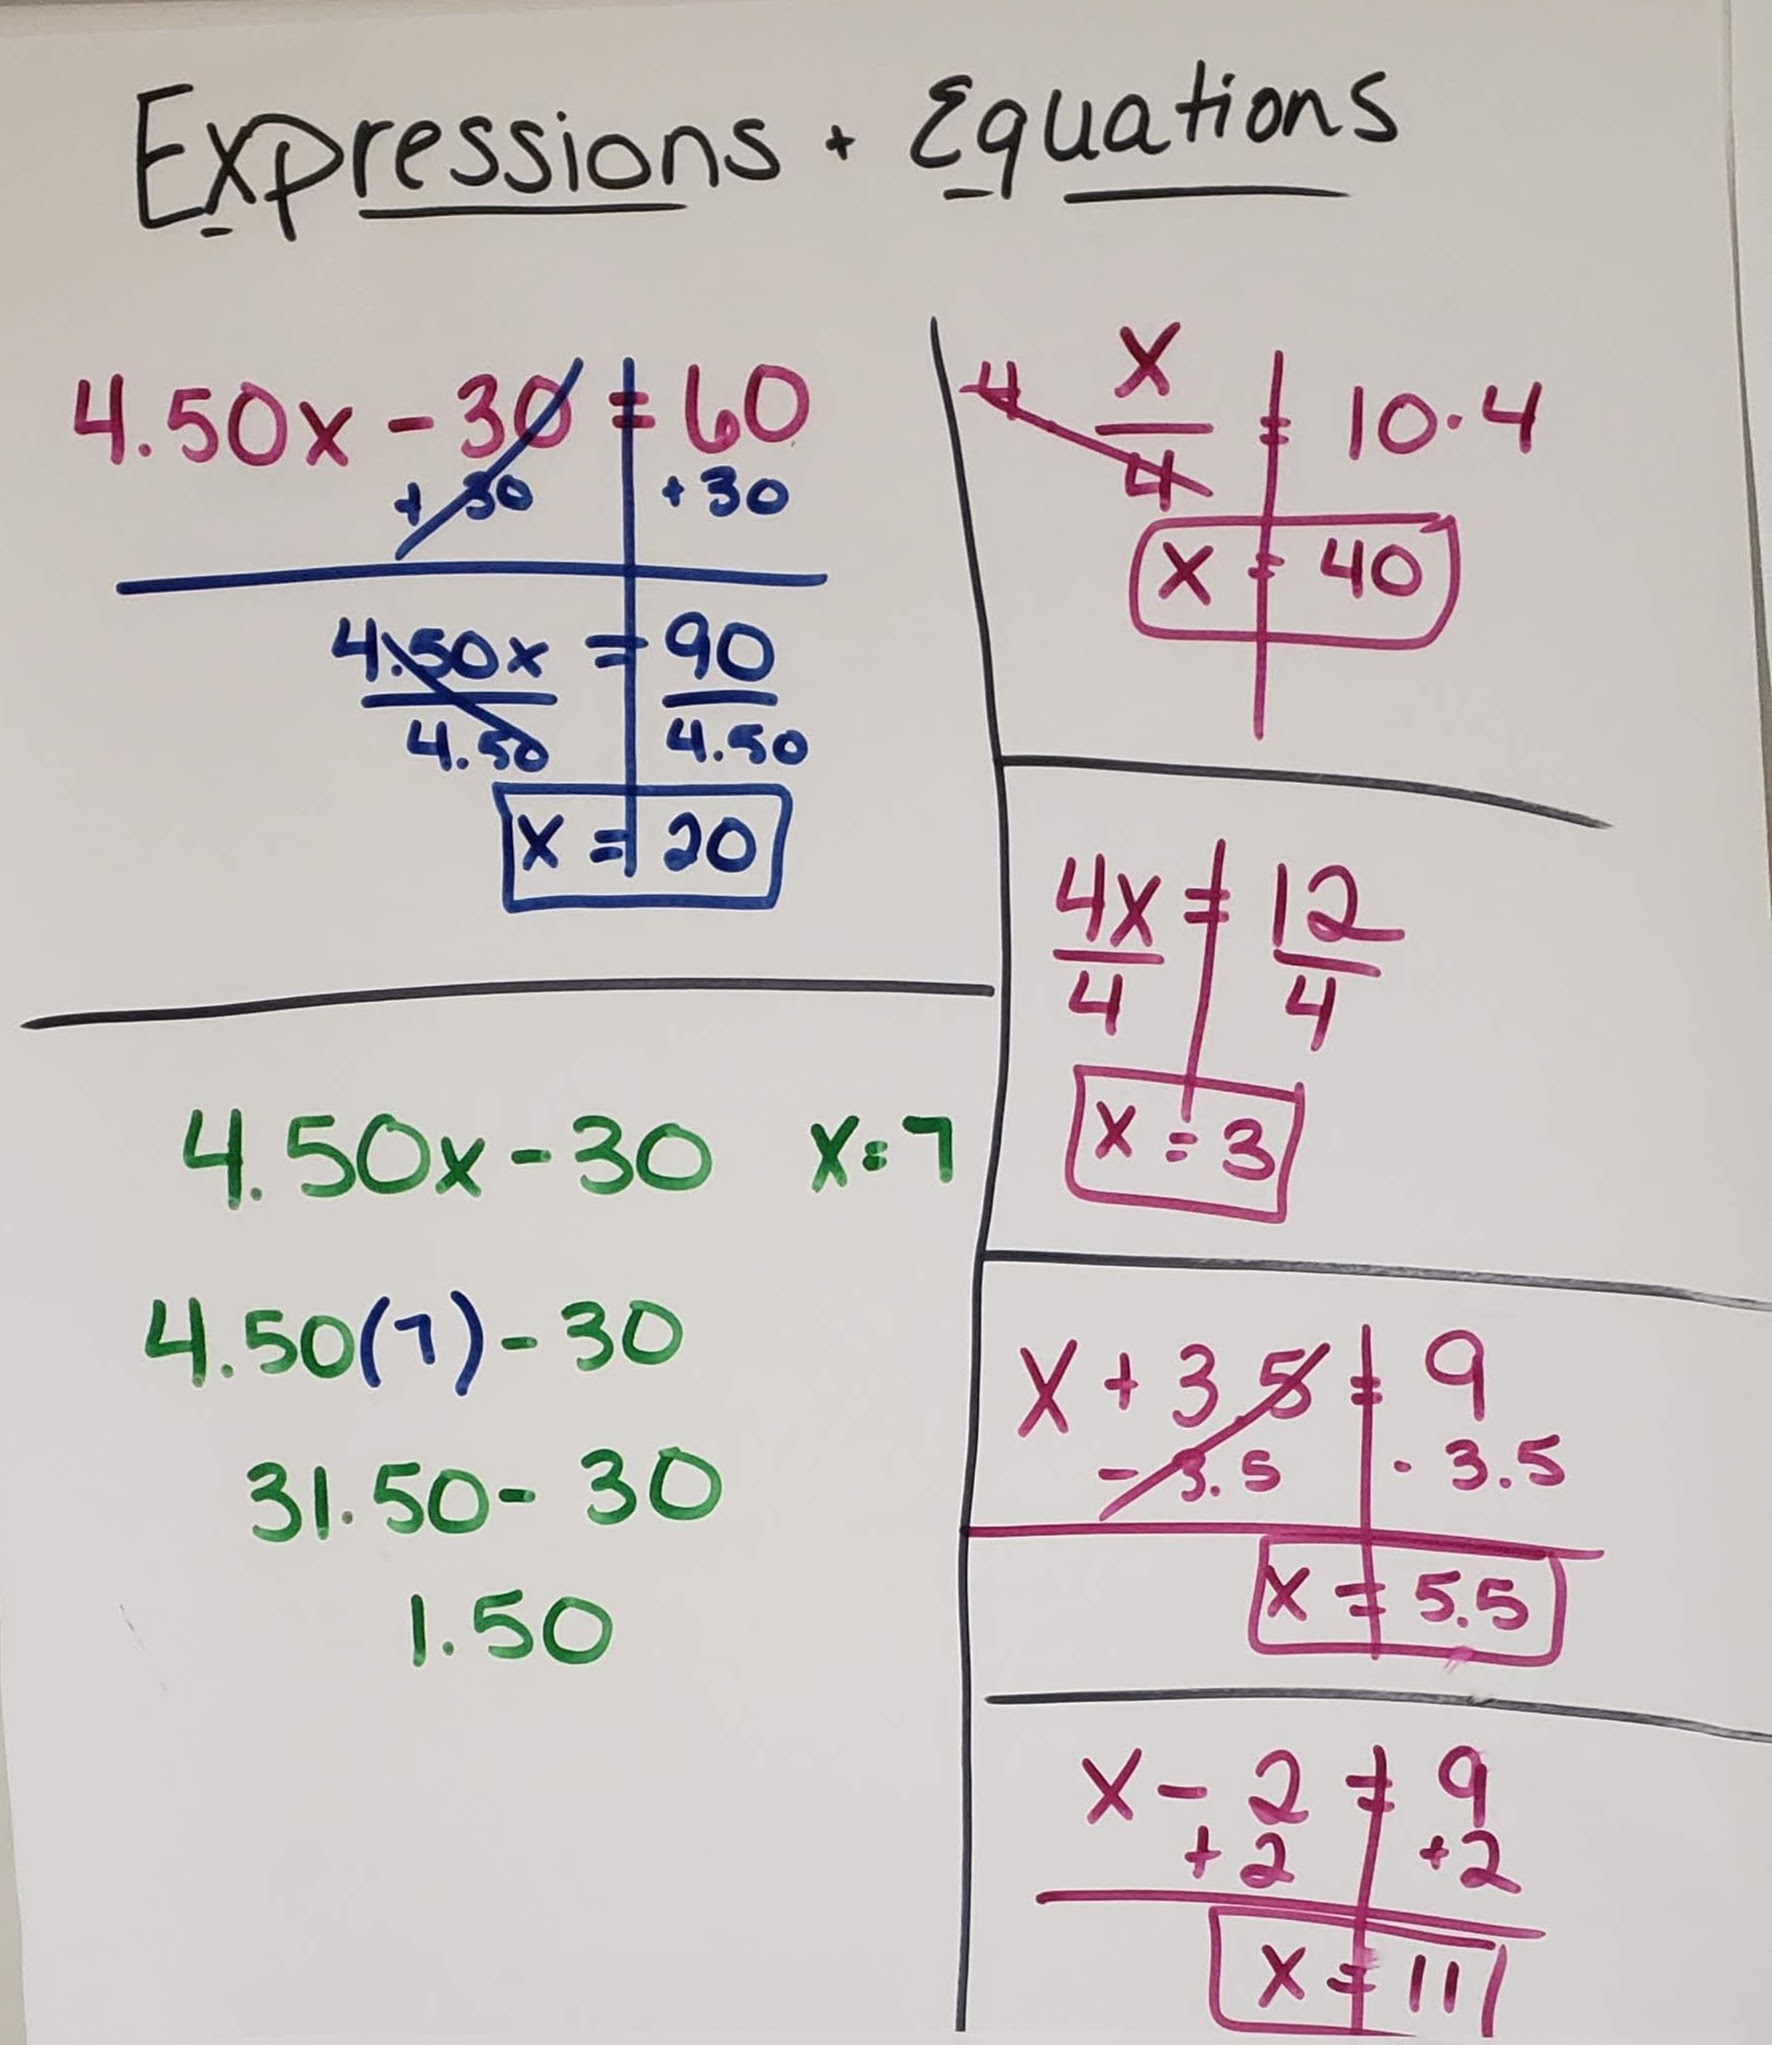 Expressions + Equations
4.50x - 30 = 60
+ 30 + 30
4.50x = 90
4.50 4.50
x = 20
4.50x - 30 x = 7
4.50(7) - 30
31.50 - 30
1.50
4 x = 10 · 4
4
x = 40
4x = 12
4 4
x = 3
x + 3.5 = 9
- 3.5 - 3.5
x = 5.5
x - 2 = 9
+ 2 + 2
x = 11